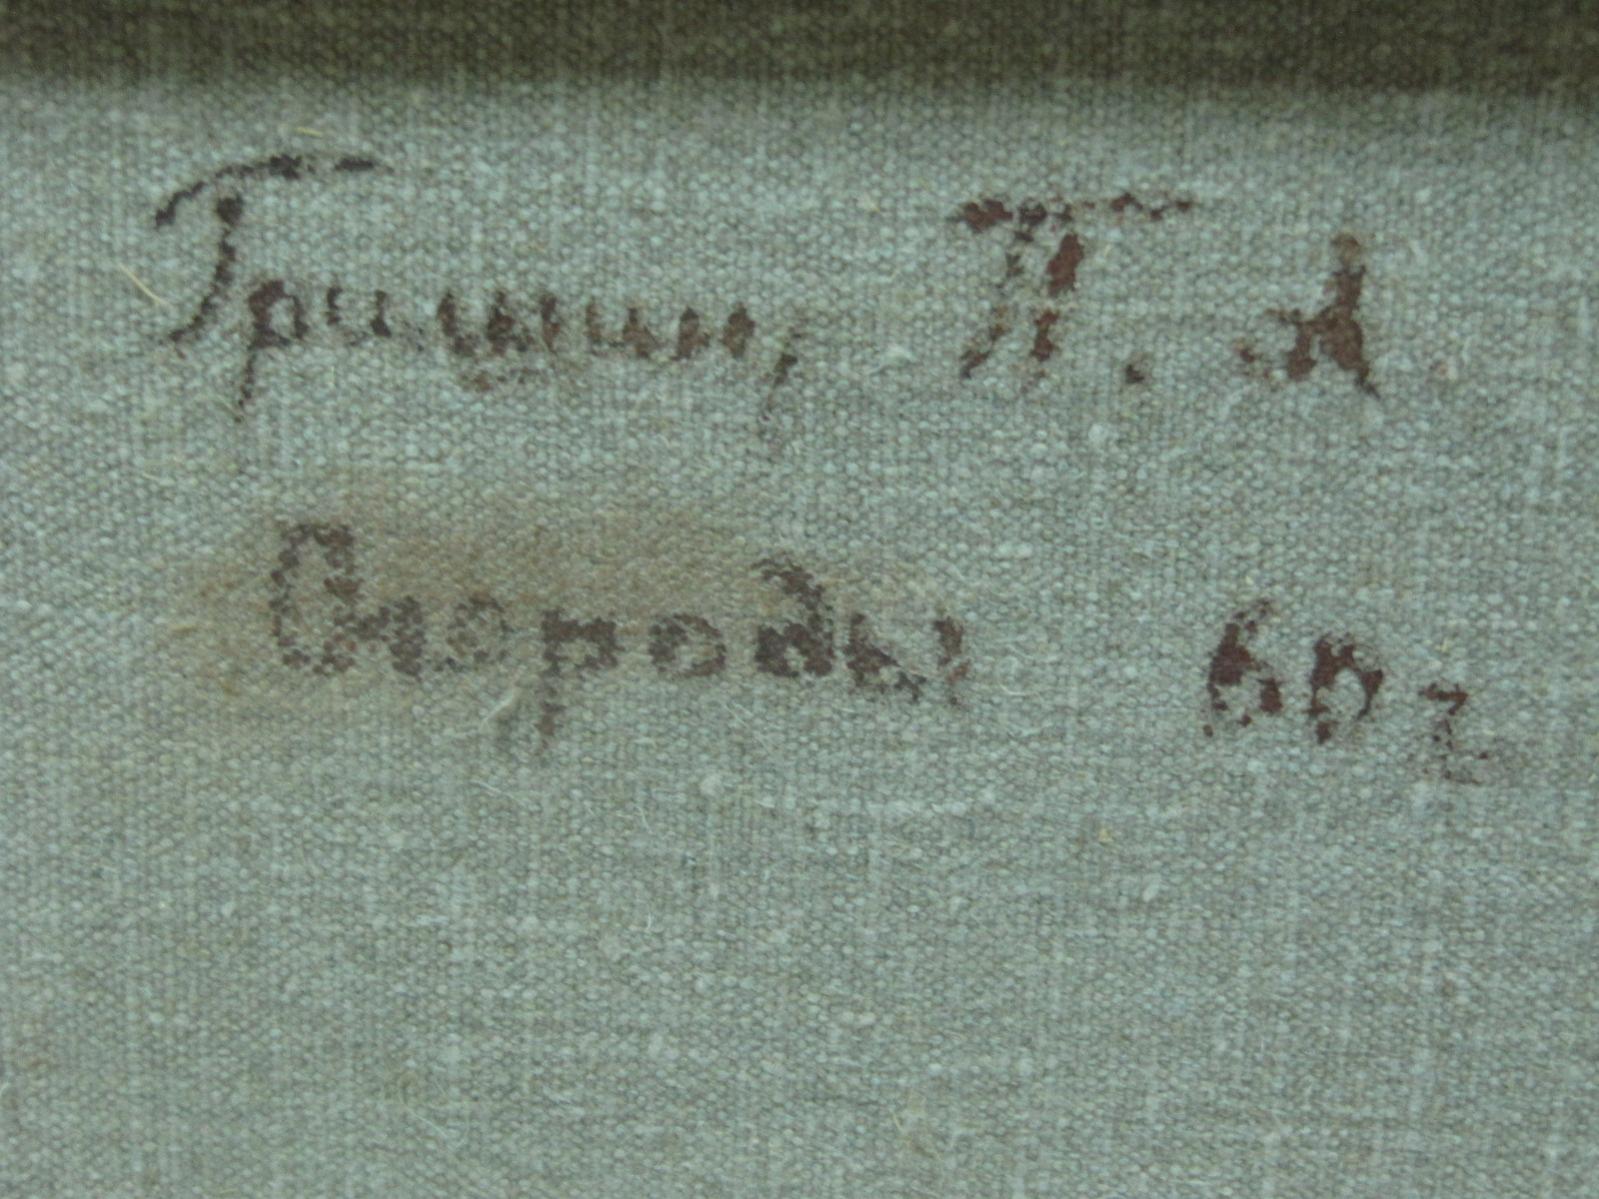 Гришин, П. А
Огороды 60 г